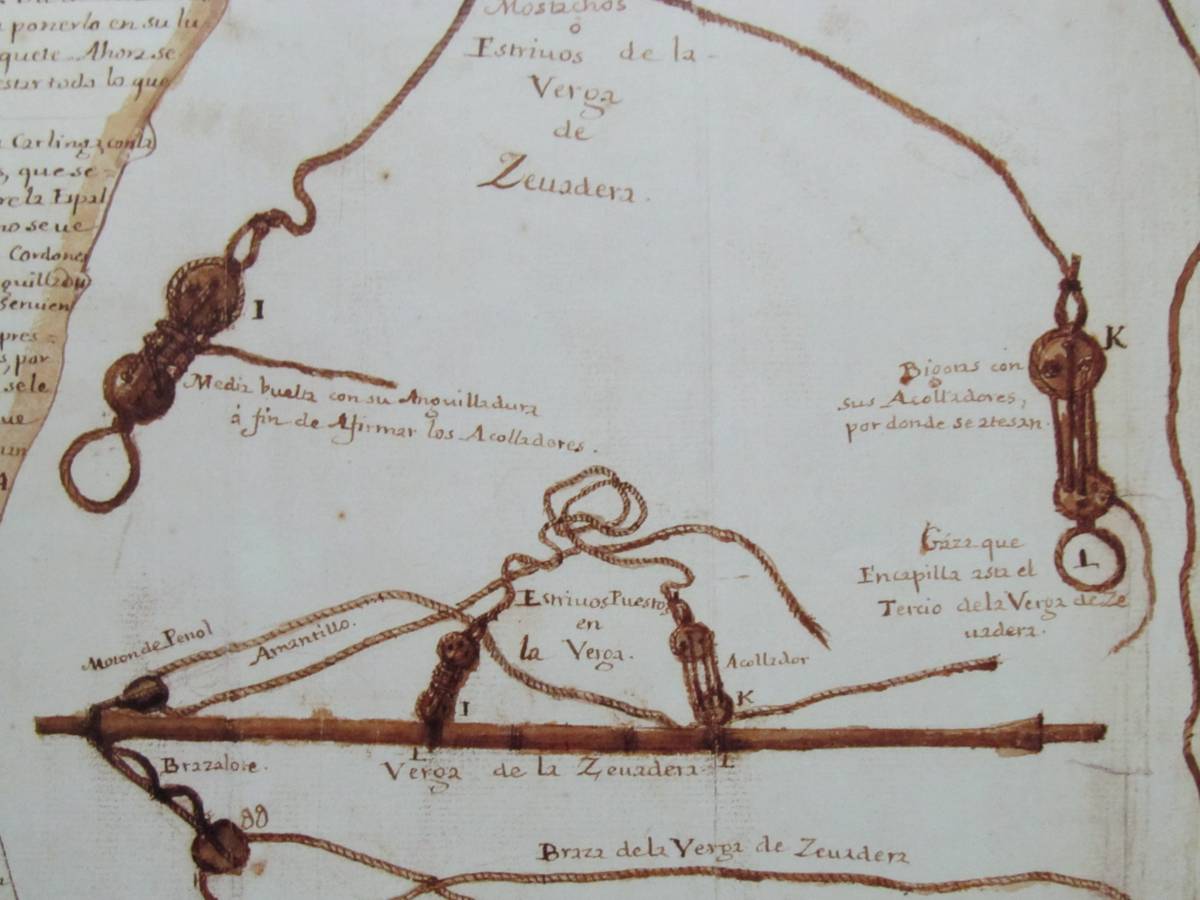 ponerlo en su lu
quete Ahora se
estar todo lo que
Carlinga, con la
s, que se
re la Espal
no se ue
Cordone
guilladu
seruien
pres
s, por
sele
ue
Mostachos
ó
Estriuos de la
Verga
de
Zeuadera.
I
Media buelta con su Anguilladura
á fin de Afirmar los Acolladores.
K
Bigotas con
sus Acolladores,
por donde se atesan.
Gaza que
Encapilla asta el
Tercio de la Verga de Ze
uadera.
L
Estriuos Puestos
en
la Verga.
Moton de Penol
Amantillo.
Acollador
I
K
L
L
Verga de la Zeuadera
Brazalote.
gg
Braza de la Verga de Zeuadera